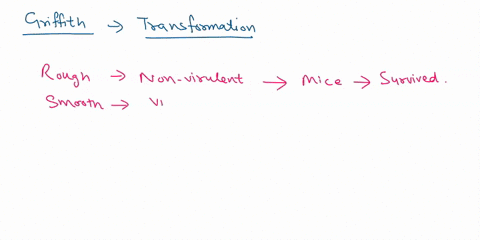 Griffith → Transformation
Rough → Non-virulent → Mice → Survived.
Smooth → Vi